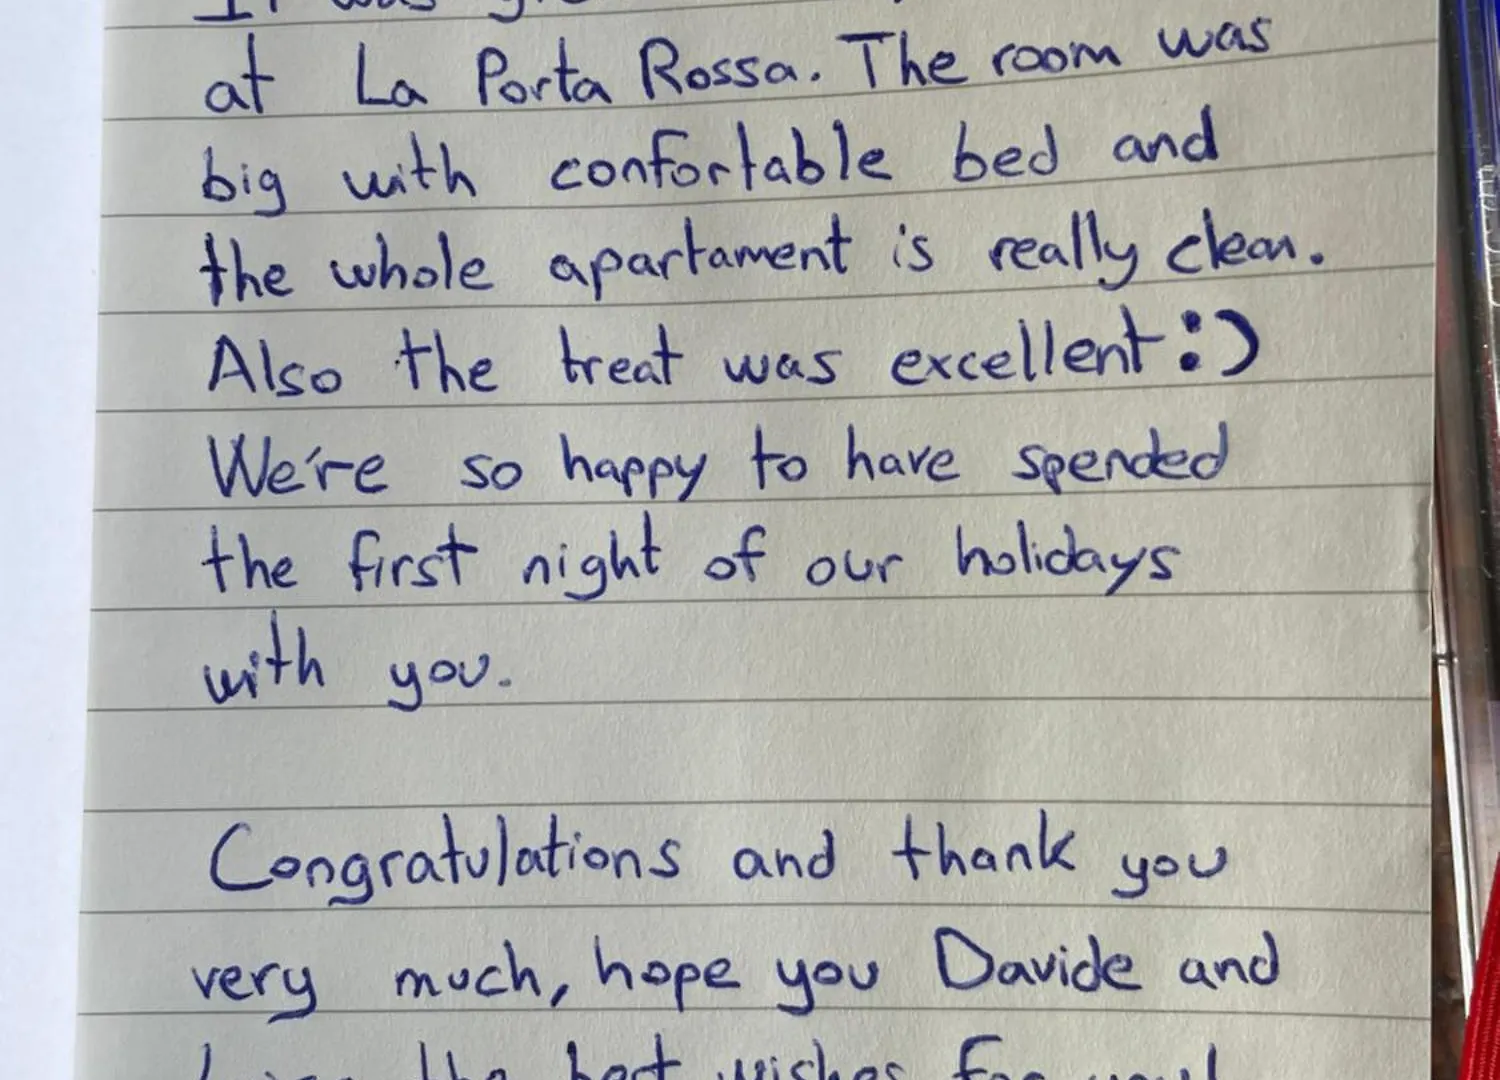 It was
at La Porta Rossa. The room was
big with confortable bed and
the whole apartament is really clean.
Also the treat was excellent :)
We're so happy to have spended
the first night of our holidays
with you.
Congratulations and thank you
very much, hope you Davide and
the best wishes for you!